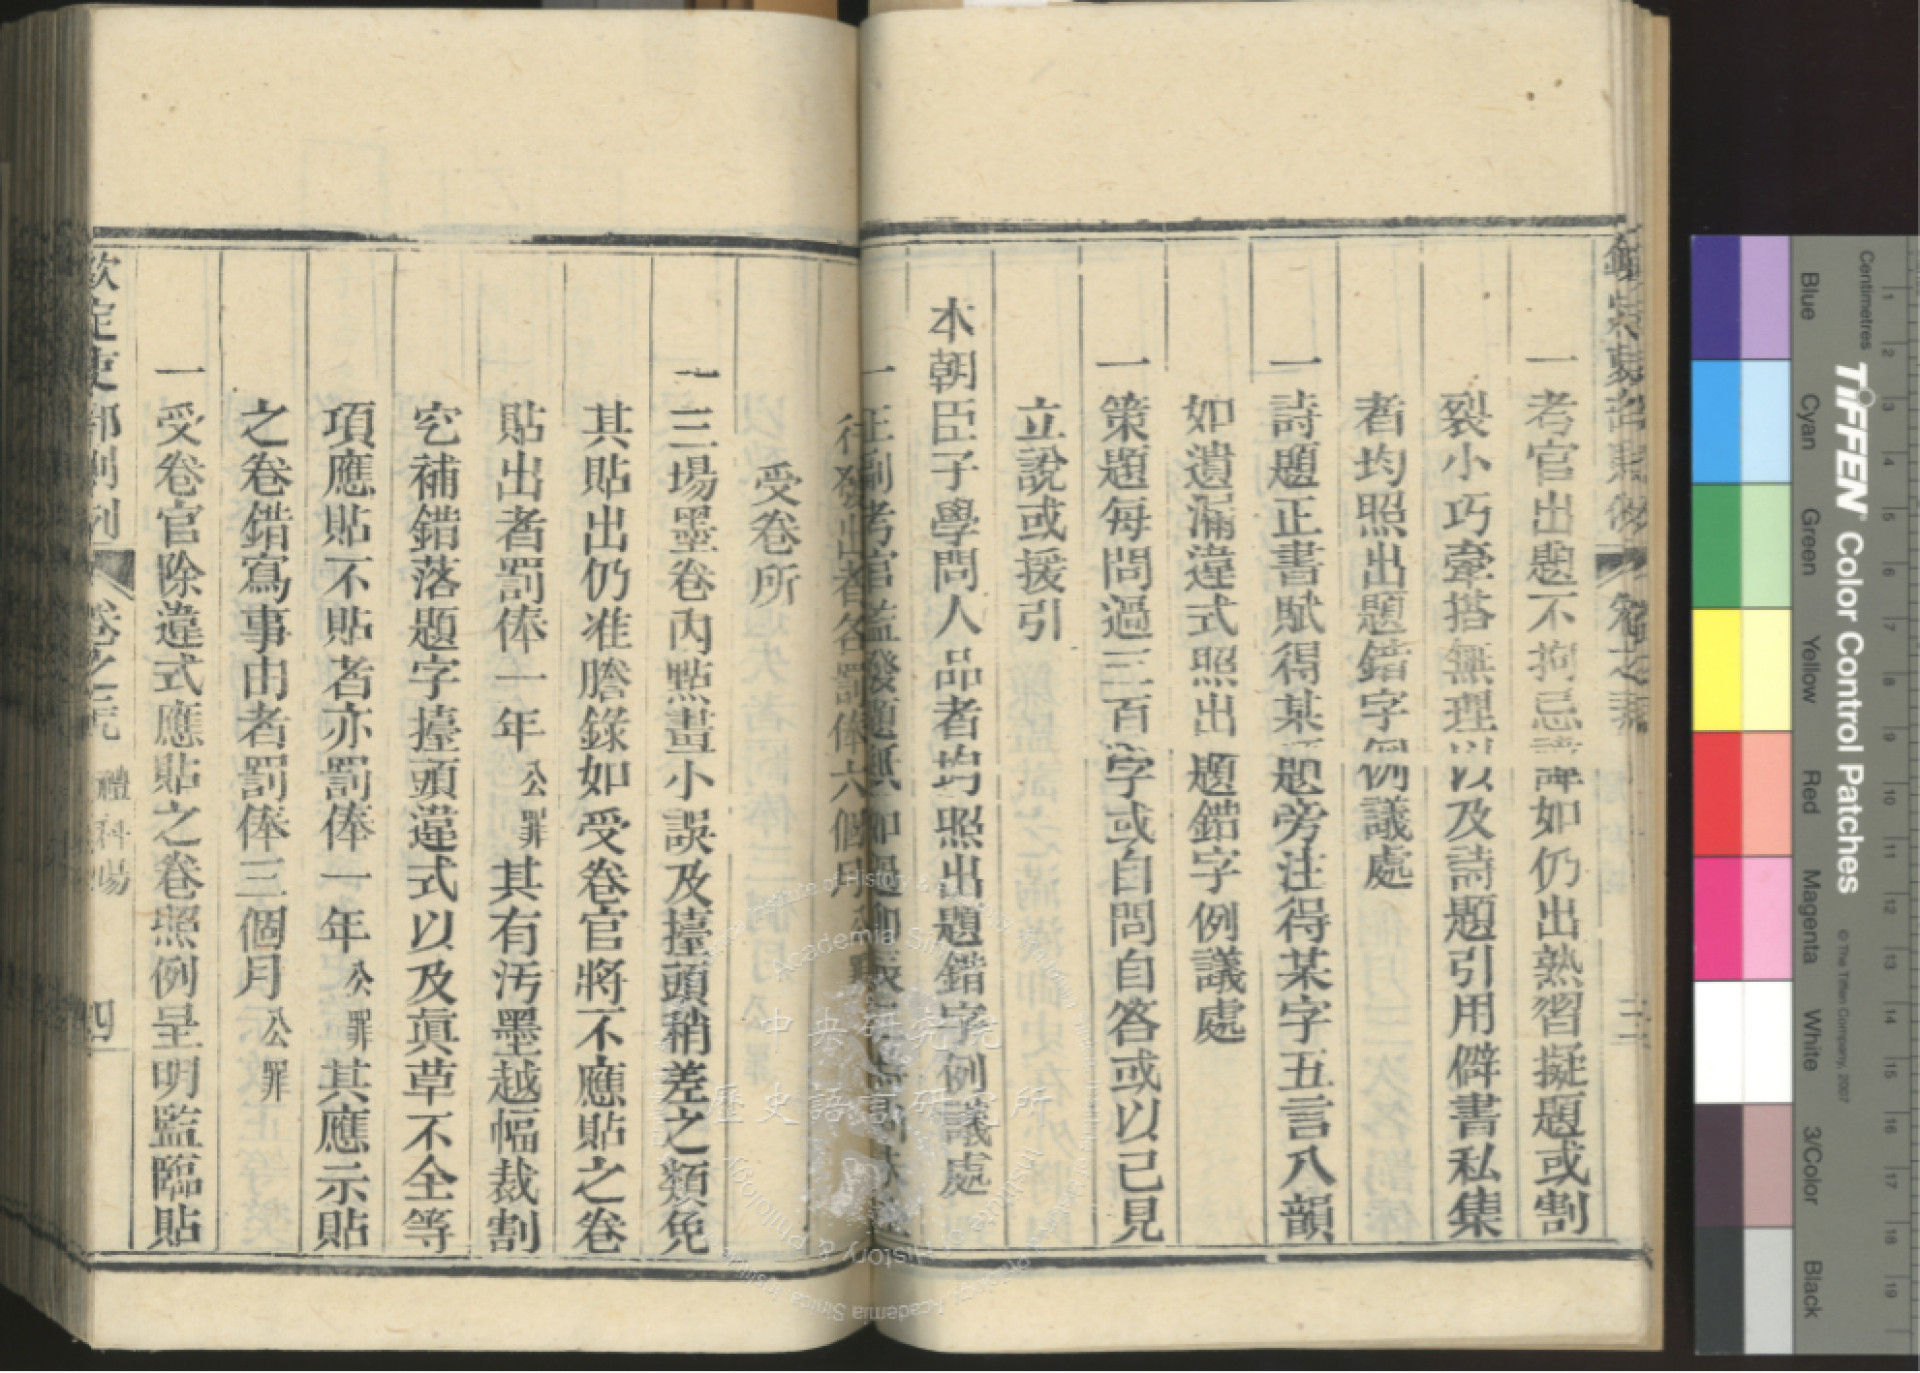 一考官出題不拘忌諱如仍出熟習擬題或割
裂小巧牽搭無理以及詩題引用僻書私集
者均照出題錯字例議處
一詩題正書賦得某題旁注得某字五言八韻
如遺漏違式照出題錯字例議處
一策題每問過三百字或自問自答或以己見
立說或援引
本朝臣子學問人品者均照出題錯字例議處
一正副考官
行發出者各罰俸六個月
受卷所
一三場墨卷內點畫小誤及擡頭稍差之類免
其貼出仍准謄錄如受卷官將不應貼之卷
貼出者罰俸一年公罪其有污墨越幅裁割
空補錯落題字擡頭違式以及眞草不全等
項應貼不貼者亦罰俸一年公罪其應示貼
之卷錯寫事由者罰俸三個月公罪
一受卷官除違式應貼之卷照例呈明監臨貼
欽定吏部則例 卷之 禮科場 四
中央研究院
歷史語言研究所
Academia Sinica
Centimetres
TIFFEN Color Control Patches
© The Tiffen Company, 2007
Blue
Cyan
Green
Yellow
Red
Magenta
White
3/Color
Black
1 2 3 4 5 6 7 8 9 10 11 12 13 14 15 16 17 18 19